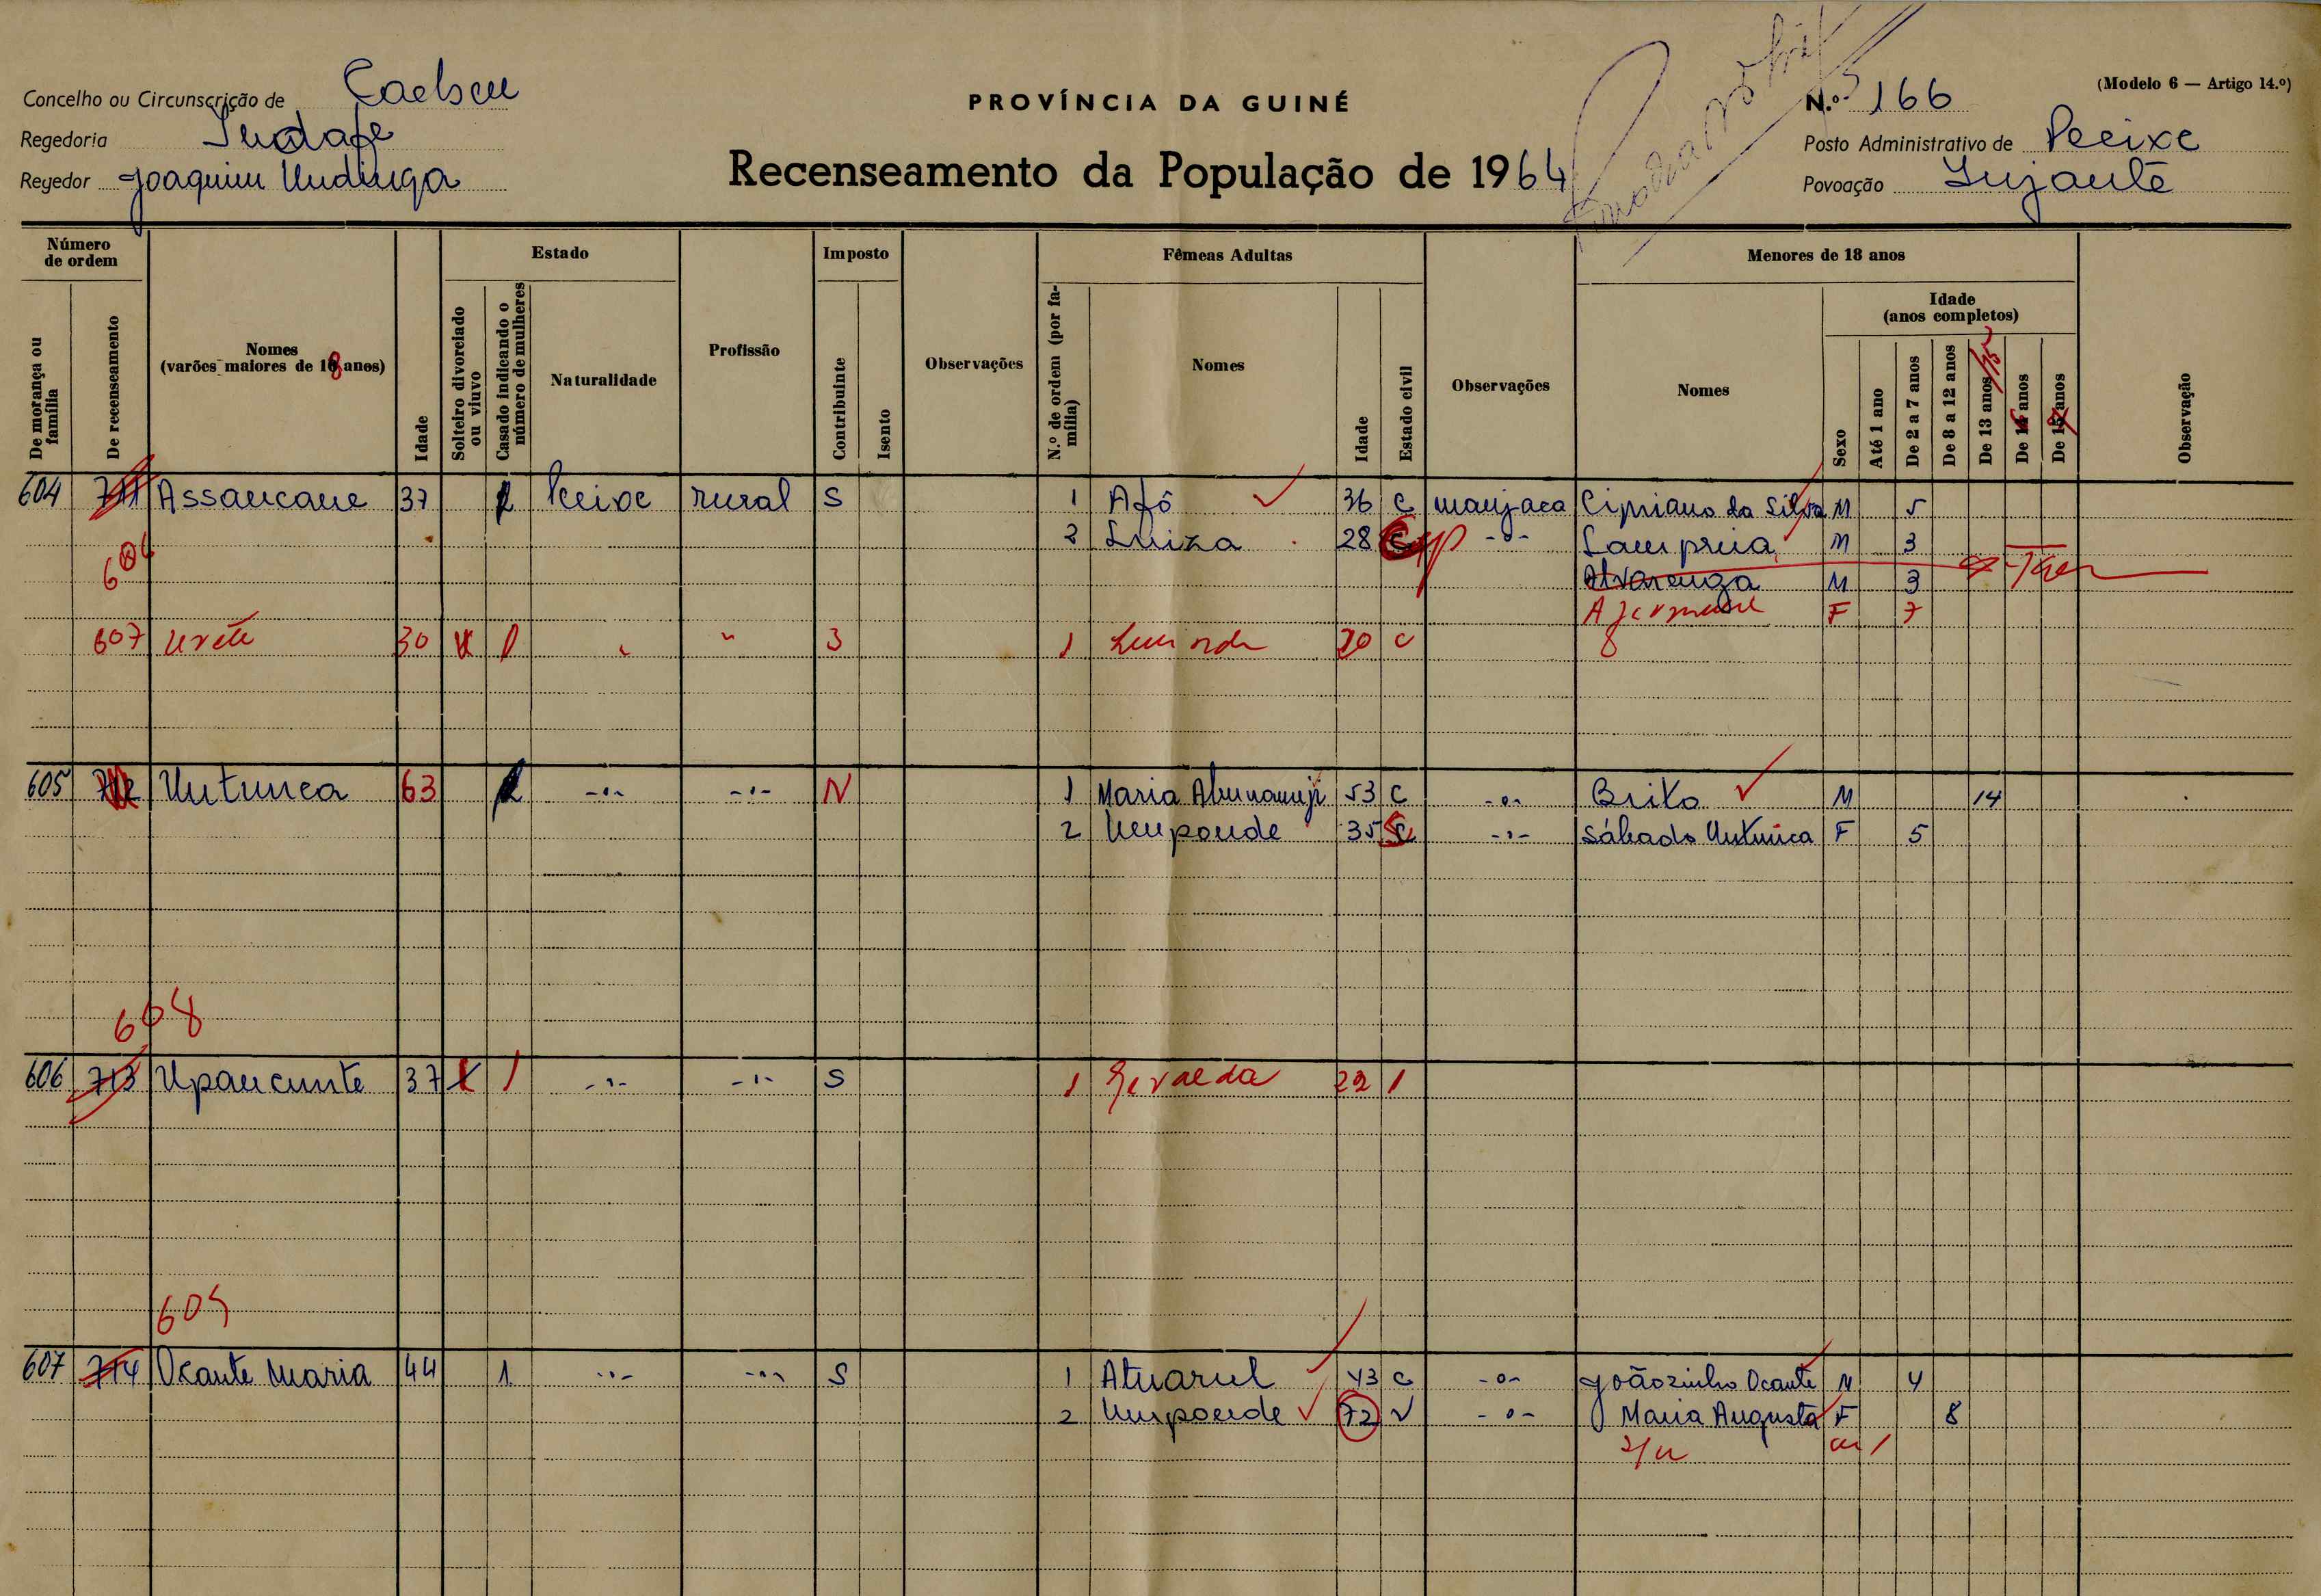 PROVÍNCIA DA GUINÉ
(Modelo 6 — Artigo 14.º)
Concelho ou Circunscrição de
N.º 166
Regedoria
Posto Administrativo de Peeixe
Regedor Joaquim Undinga
Recenseamento da População de 1964
Povoação Jujante
Número de ordem
Estado
Imposto
Fêmeas Adultas
Menores de 18 anos
Idade (anos completos)
De morança ou família
De recenseamento
Nomes (varões maiores de 18 anos)
Idade
Solteiro divorciado ou viuvo
Casado indicando o número de mulheres
Naturalidade
Profissão
Contribuinte
Isento
Observações
N.º de ordem (por família)
Nomes
Idade
Estado civil
Observações
Nomes
Sexo
Até 1 ano
De 2 a 7 anos
De 8 a 12 anos
De 13 anos/15
De anos
De anos
Observação
604 711 Assancane 37 Peixe rural S 1 Afô 36 C manjaca Cipriano da Silva M 5
2 Luiza 28 -"- Sampria M 3
606 Alvarenga M 3
F 7
607 Urete 30 1 " " S 1 30 C
605 712 Untunca 63 -"- -"- N 1 Maria 53 C -"- Brito M 14
2 Umpande 35 -"- Sábado Untunca F 5
608
606 713 Upancunte 37 1 -"- -"- S 1 Geralda 22 1
609
607 714 Ocante Maria 44 1 -"- -"- S 1 Atuarul 43 C -"- Joãozinho Ocante M 4
2 Umpande 72 V -"- Maria Augusta F 8